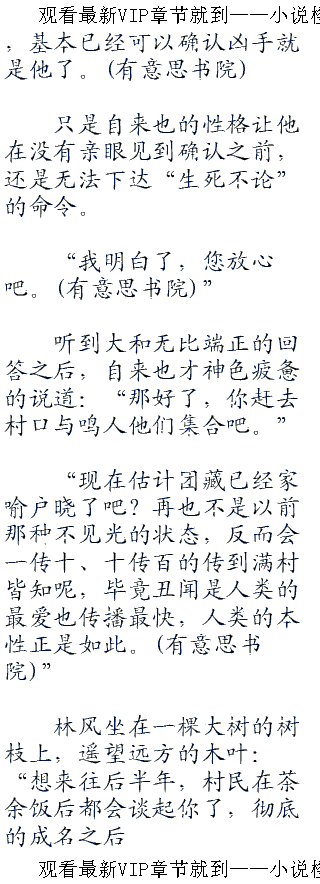 观看最新VIP章节就到——小说
，基本已经可以确认凶手就
是他了。(有意思书院)
只是自来也的性格让他
在没有亲眼见到确认之前，
还是无法下达“生死不论”
的命令。
“我明白了，您放心
吧。(有意思书院)”
听到大和无比端正的回
答之后，自来也才神色疲惫
的说道：“那好了，你赶去
村口与鸣人他们集合吧。”
“现在估计团藏已经家
喻户晓了吧？再也不是以前
那种不见光的状态，反而会
一传十、十传百的传到满村
皆知呢，毕竟丑闻是人类的
最爱也传播最快，人类的本
性正是如此。(有意思书
院)”
林风坐在一棵大树的树
枝上，遥望远方的木叶：
“想来往后半年，村民在茶
余饭后都会谈起你了，彻底
的成名之后
观看最新VIP章节就到——小说